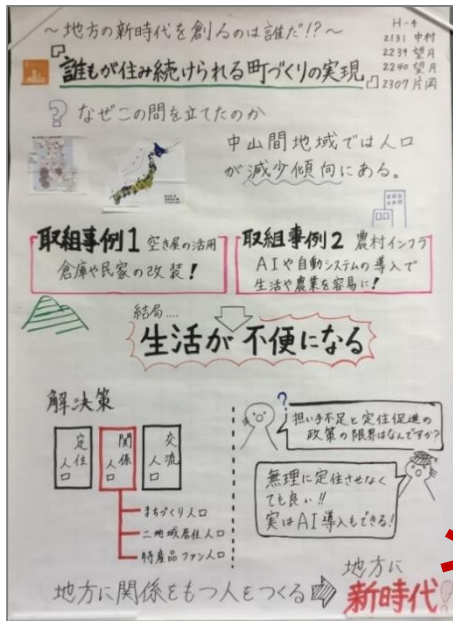 ～地方の新時代を創るのは誰だ!?～
H-4
2131 中村
2239 望月
2240 望月
2307 片岡
『誰もが住み続けられる町づくりの実現』
？なぜこの問を立てたのか
中山間地域では人口
が減少傾向にある。
取組事例1 空き屋の活用
倉庫や民家の改装！
取組事例2 農村インフラ
AIや自動システムの導入で
生活や農業を容易に！
結局....
生活が不便になる
解決策
定住人口
関係人口
交流人口
まちづくり人口
二地域居住人口
特産品ファン人口
?
担い手不足と定住促進の
政策の限界はなんですか?
無理に定住させなく
ても良い!!
実はAI導入もできる!
地方に関係をもつ人をつくる⇨
地方に
新時代!